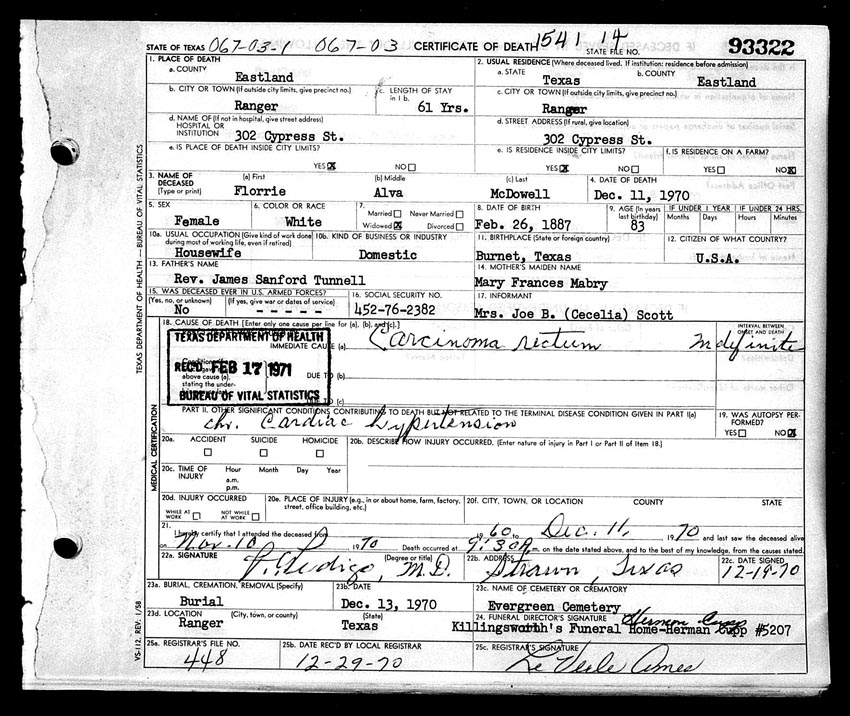 067-03-1 067-03 1541 14
STATE OF TEXAS CERTIFICATE OF DEATH STATE FILE NO. 93322
1. PLACE OF DEATH
a. COUNTY
Eastland
2. USUAL RESIDENCE (Where deceased lived. If institution: residence before admission)
a. STATE
Texas
b. COUNTY
Eastland
b. CITY OR TOWN (If outside city limits, give precinct no.)
Ranger
c. LENGTH OF STAY
in 1 b.
61 Yrs.
c. CITY OR TOWN (If outside city limits, give precinct no.)
Ranger
d. NAME OF (If not in hospital, give street address)
HOSPITAL OR
INSTITUTION 302 Cypress St.
d. STREET ADDRESS (If rural, give location)
302 Cypress St.
e. IS PLACE OF DEATH INSIDE CITY LIMITS?
YES X NO
e. IS RESIDENCE INSIDE CITY LIMITS?
YES X NO
f. IS RESIDENCE ON A FARM?
YES NO X
3. NAME OF
DECEASED
(Type or print)
(a) First
Florrie
(b) Middle
Alva
(c) Last
McDowell
4. DATE OF DEATH
Dec. 11, 1970
5. SEX
Female
6. COLOR OR RACE
White
7.
Married Never Married
Widowed X Divorced
8. DATE OF BIRTH
Feb. 26, 1887
9. AGE (In years
last birthday)
83
IF UNDER 1 YEAR
Months Days
IF UNDER 24 HRS.
Hours Minutes
10a. USUAL OCCUPATION (Give kind of work done
during most of working life, even if retired)
Housewife
10b. KIND OF BUSINESS OR INDUSTRY
Domestic
11. BIRTHPLACE (State or foreign country)
Burnet, Texas
12. CITIZEN OF WHAT COUNTRY?
U.S.A.
13. FATHER'S NAME
Rev. James Sanford Tunnell
14. MOTHER'S MAIDEN NAME
Mary Frances Mabry
15. WAS DECEASED EVER IN U.S. ARMED FORCES?
(Yes, no, or unknown) (If yes, give war or dates of service)
No - - - - -
16. SOCIAL SECURITY NO.
452-76-2382
17. INFORMANT
Mrs. Joe B. (Cecelia) Scott
18. CAUSE OF DEATH [Enter only one cause per line for (a), (b), and (c).]
INTERVAL BETWEEN
ONSET AND DEATH
IMMEDIATE CAUSE (a) Carcinoma rectum Indefinite
TEXAS DEPARTMENT OF HEALTH
REC'D FEB 17 1971
BUREAU OF VITAL STATISTICS
above cause (a),
stating the under-
DUE TO (b)
DUE TO (c)
PART II. OTHER SIGNIFICANT CONDITIONS CONTRIBUTING TO DEATH BUT NOT RELATED TO THE TERMINAL DISEASE CONDITION GIVEN IN PART I(a)
chr. Cardiac hypertension
19. WAS AUTOPSY PER-
FORMED?
YES NO X
20a. ACCIDENT SUICIDE HOMICIDE
20b. DESCRIBE HOW INJURY OCCURRED. (Enter nature of injury in Part I or Part II of Item 18.)
20c. TIME OF
INJURY
Hour Month Day Year
a.m.
p.m.
20d. INJURY OCCURRED
WHILE AT
WORK
NOT WHILE
AT WORK
20e. PLACE OF INJURY (e.g., in or about home, farm, factory,
street, office building, etc.)
20f. CITY, TOWN, OR LOCATION COUNTY STATE
21.
I hereby certify that I attended the deceased from 1960 to Dec. 11, 1970 and last saw the deceased alive
on Nov. 10 1970 Death occurred at 9:30 A. m. on the date stated above, and to the best of my knowledge, from the causes stated.
22a. SIGNATURE (Degree or title)
M.D.
22b. ADDRESS
Strawn, Texas
22c. DATE SIGNED
12-19-70
23a. BURIAL, CREMATION, REMOVAL (Specify)
Burial
23b. DATE
Dec. 13, 1970
23c. NAME OF CEMETERY OR CREMATORY
Evergreen Cemetery
23d. LOCATION (City, town, or county) (State)
Ranger Texas
24. FUNERAL DIRECTOR'S SIGNATURE Herman Cupp
Killingsworth's Funeral Home-Herman Cupp #5207
25a. REGISTRAR'S FILE NO.
448
25b. DATE REC'D BY LOCAL REGISTRAR
12-29-70
25c. REGISTRAR'S SIGNATURE
Le Verle Ames
TEXAS DEPARTMENT OF HEALTH—BUREAU OF VITAL STATISTICS
MEDICAL CERTIFICATION
VS-112, REV. 1/58